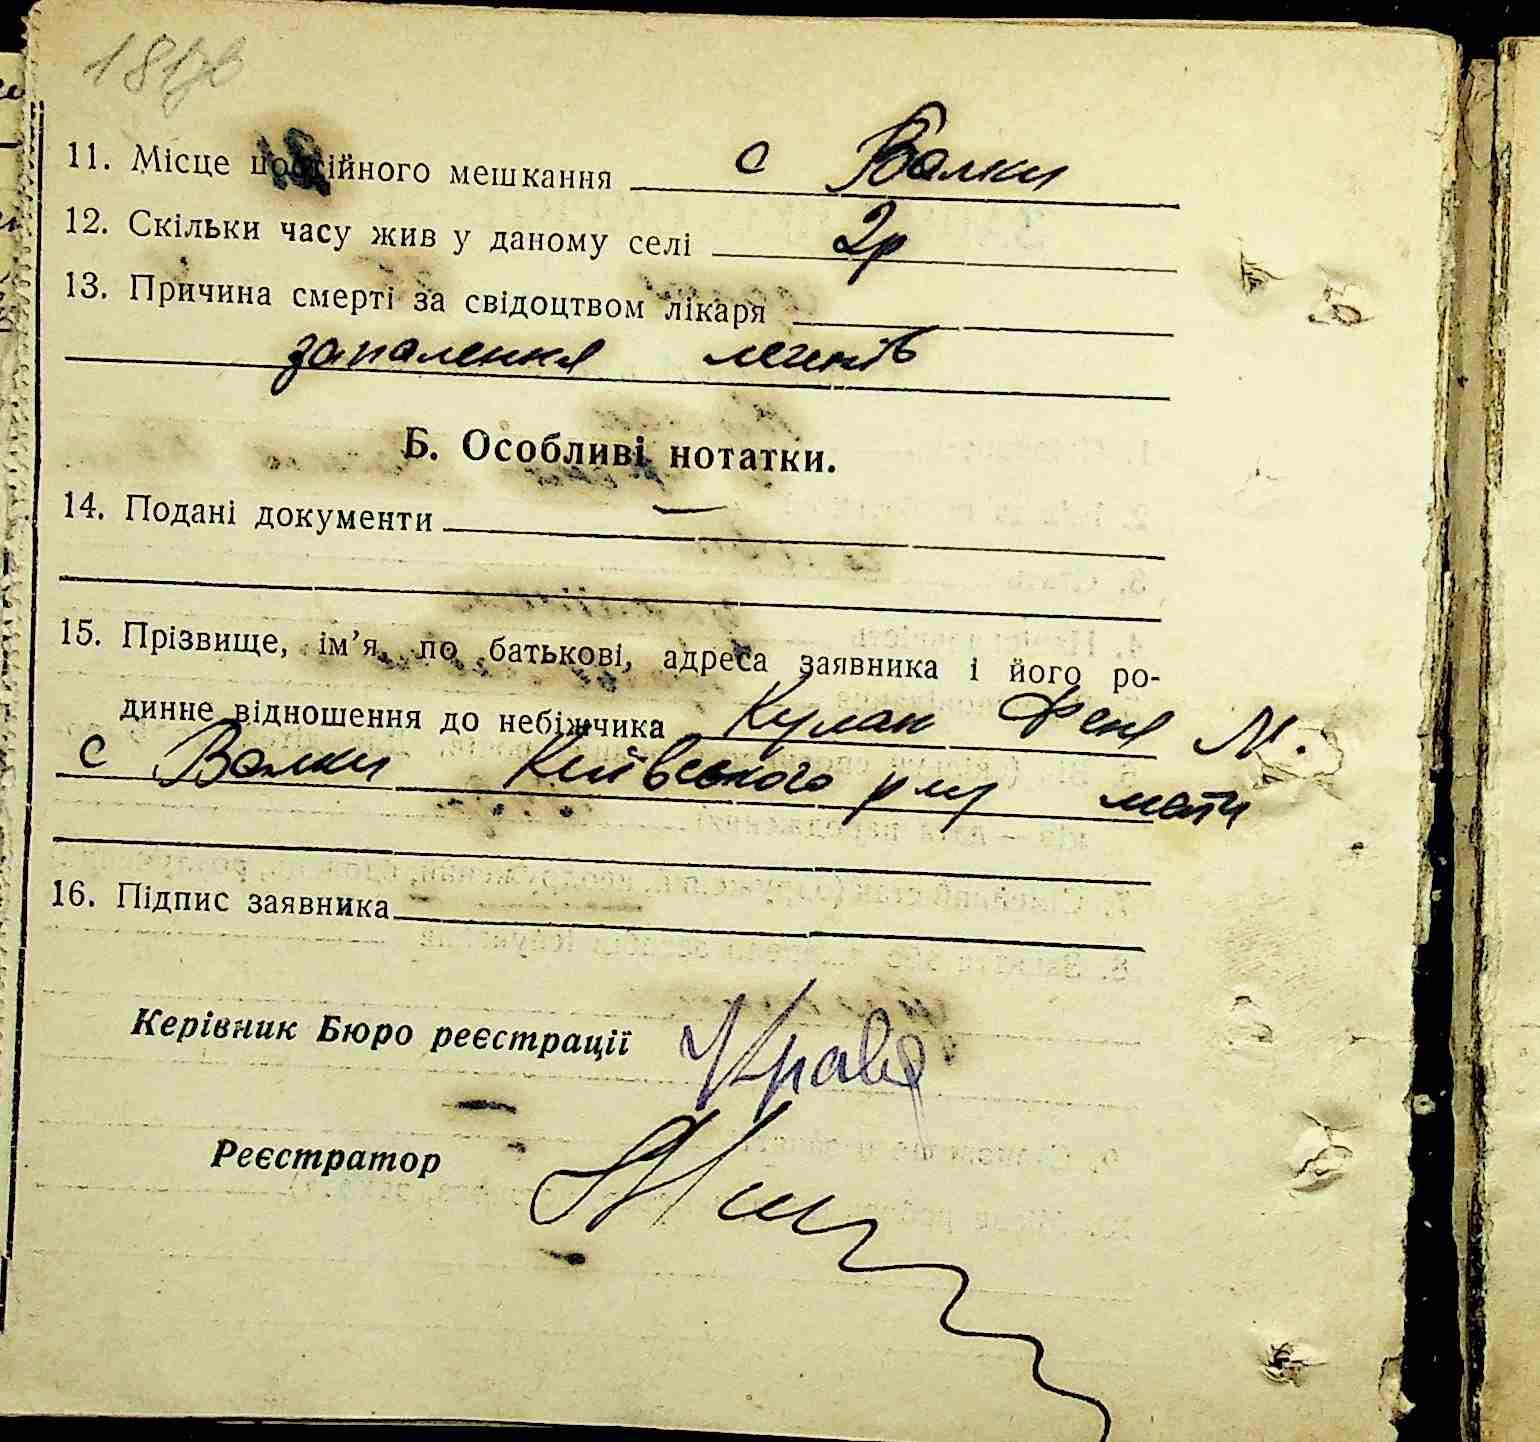 11. Місце постійного мешкання с Валки
12. Скільки часу жив у даному селі 2р
13. Причина смерті за свідоцтвом лікаря
запалення легенів
Б. Особливі нотатки.
14. Подані документи —
15. Прізвище, ім’я, по батькові, адреса заявника і його ро-
динне відношення до небіжчика Кулак Феня М.
с Валки Київського р мати
16. Підпис заявника
Керівник Бюро реєстрації
Реєстратор